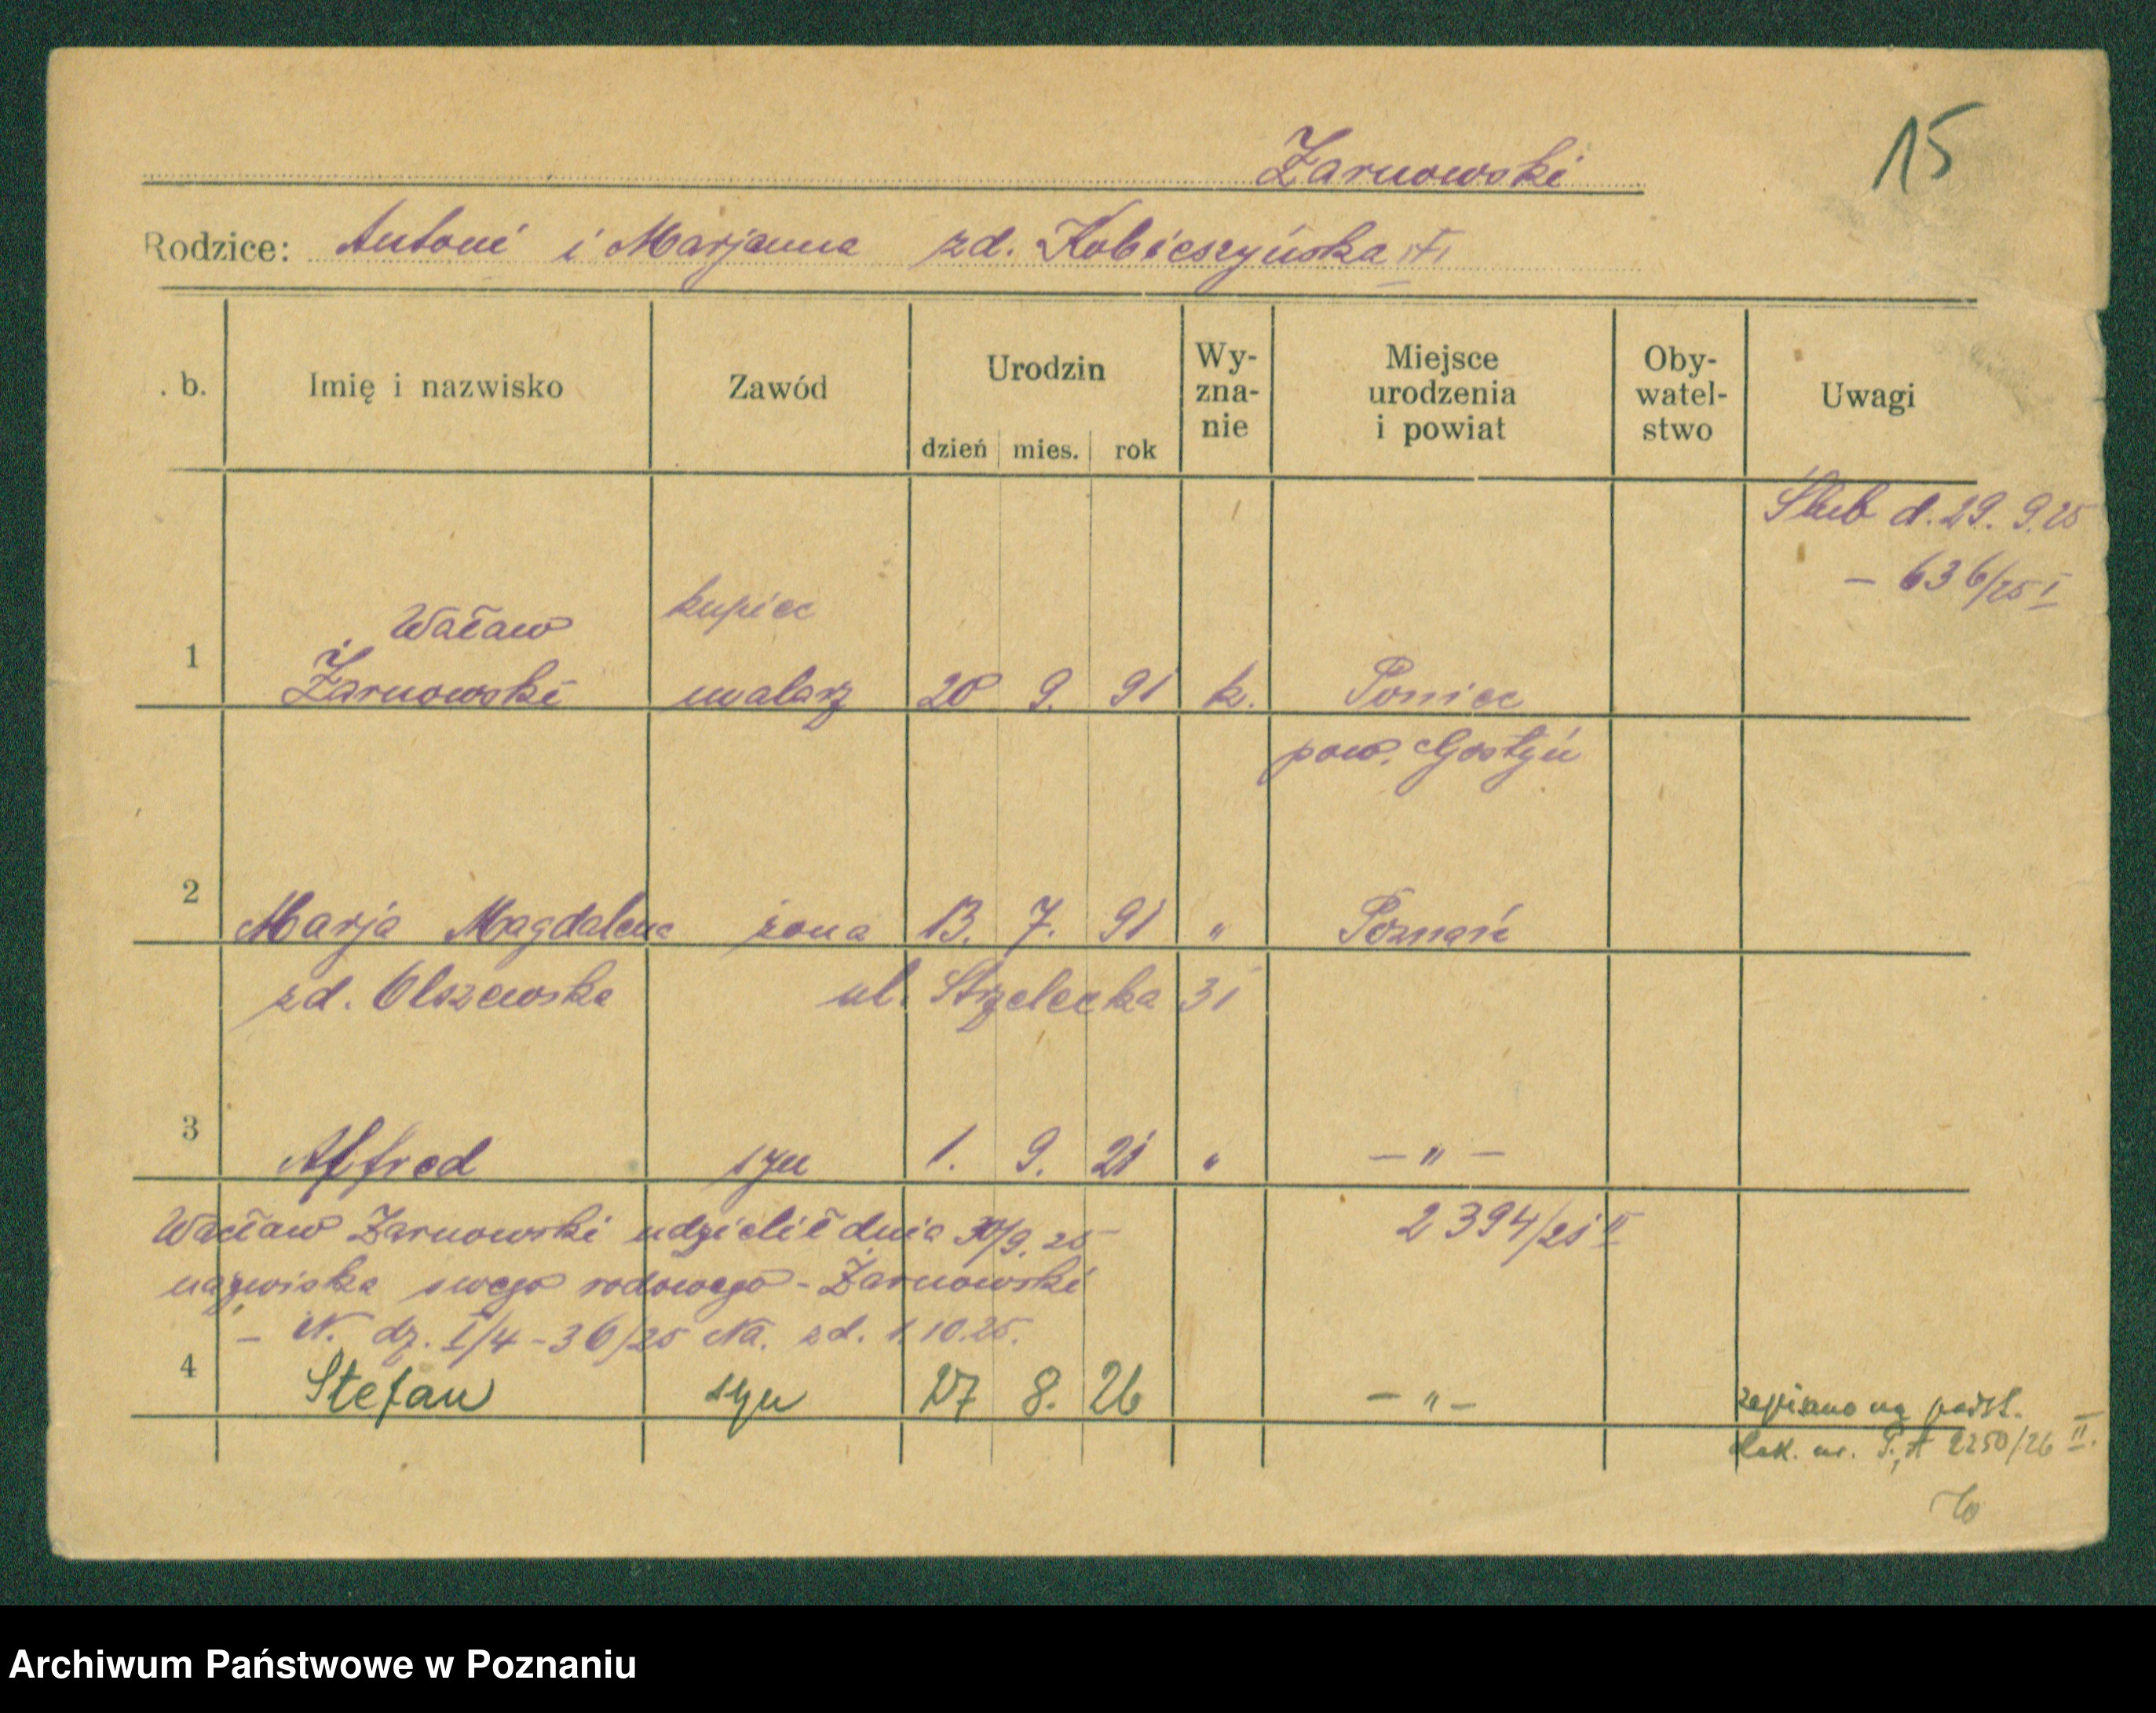 15
Żarnowski
Rodzice: Antoni i Marjanna zd. Kobieszyńska
. b. Imię i nazwisko Zawód Urodzin Wy- Miejsce Oby- Uwagi
zna- urodzenia watel-
nie i powiat stwo
dzień mies. rok
Ślub d. 29. 9. 25
– 636/25 I
Wacław kupiec
1 Żarnowski malarz 20 9. 91 k. Poniec
pow. Gostyń
2 Marja Magdalena żona 13. 7. 91 " Poznań
zd. Olszewska ul. Strzelecka 31
3 Alfred syn 1. 9. 21 " – " –
Wacław Żarnowski udzielił dnia 30/9. 25 2394/21 II
nazwiska swego rodowego - Żarnowski
– N. dz. I/4 - 36/25 Na. zd. 1.10.25.
4 Stefan syn 27 8. 26 – " – zapisano na podst.
dok. nr. 2250/26 II.
Archiwum Państwowe w Poznaniu